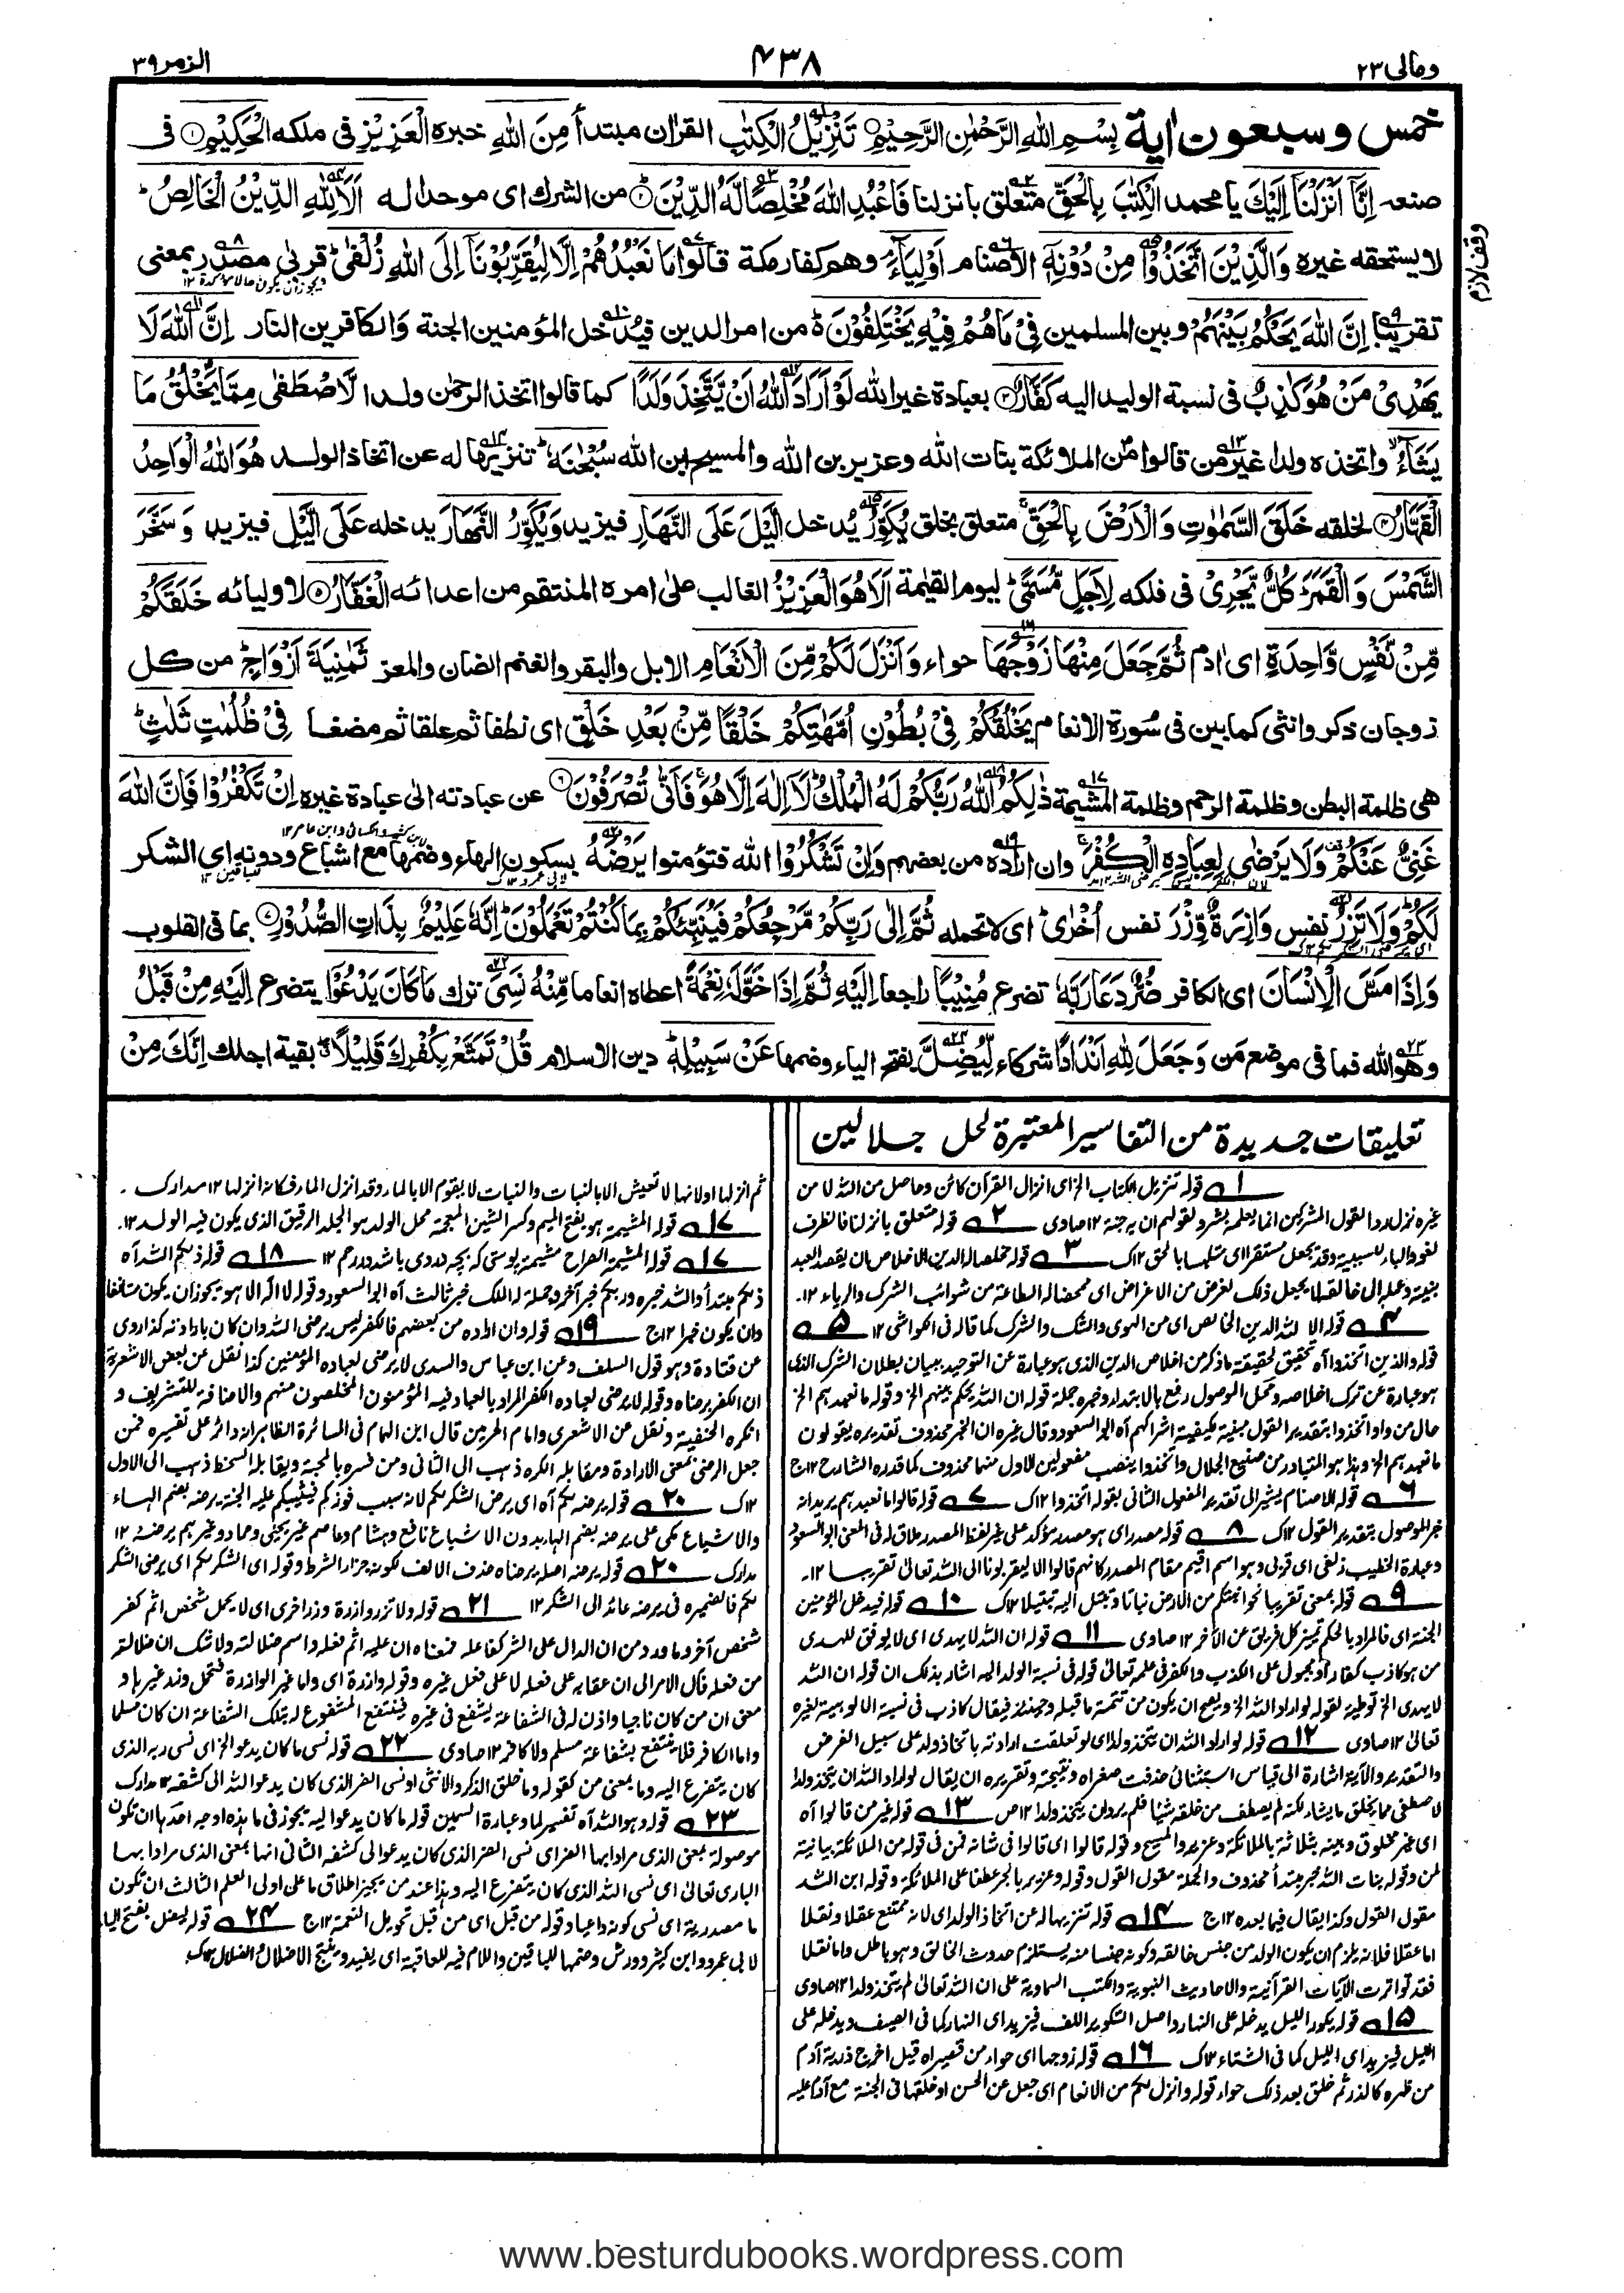 ومالی ٢٣
٤٣٨
الزمر ٣٩
خمس وسبعون اٰية بِسْمِ اللهِ الرَّحْمٰنِ الرَّحِيْمِ تَنْزِيْلُ الْكِتٰبِ القراٰن مبتدأ مِنَ اللهِ خبره الْعَزِيْزِ فى ملكه الْحَكِيْمِ ① فى
صنعه اِنَّآ اَنْزَلْنَآ اِلَيْكَ يا محمد الْكِتٰبَ بِالْحَقِّ متعلق بانزلنا فَاعْبُدِ اللهَ مُخْلِصًا لَّهُ الدِّيْنَ ② من الشرك اى موحدا له اَلَا لِلّٰهِ الدِّيْنُ الْخَالِصُ ط
لا يستحقه غيره وَالَّذِيْنَ اتَّخَذُوْا مِنْ دُوْنِهٖٓ الاصنام اَوْلِيَآءَ وهم كفار مكة قالوا مَا نَعْبُدُهُمْ اِلَّا لِيُقَرِّبُوْنَآ اِلَى اللهِ زُلْفٰى قربٰى مصدر بمعنى
تقريبا اِنَّ اللهَ يَحْكُمُ بَيْنَهُمْ وبين المسلمين فِيْ مَا هُمْ فِيْهِ يَخْتَلِفُوْنَ من امر الدين فيدخل المؤمنين الجنة والكافرين النار اِنَّ اللهَ لَا
يَهْدِيْ مَنْ هُوَ كٰذِبٌ فى نسبة الوليد اليه كَفَّارٌ ③ بعبادة غير الله لَوْ اَرَادَ اللهُ اَنْ يَّتَّخِذَ وَلَدًا كما قالوا اتخذ الرحمٰن ولدا لَّاصْطَفٰى مِمَّا يَخْلُقُ مَا
يَشَآءُ واتخذه ولدا غير من قالوا من الملائكة بنات الله وعزير بن الله والمسيح بن الله سُبْحٰنَهٗ تنزيها له عن اتخاذ الولد هُوَ اللهُ الْوَاحِدُ
الْقَهَّارُ ④ لخلقه خَلَقَ السَّمٰوٰتِ وَالْاَرْضَ بِالْحَقِّ متعلق بخلق يُكَوِّرُ يدخل الَّيْلَ عَلَى النَّهَارِ فيزيد وَيُكَوِّرُ النَّهَارَ يدخله عَلَى الَّيْلِ فيزيد وَسَخَّرَ
الشَّمْسَ وَالْقَمَرَ كُلٌّ يَّجْرِيْ فى فلكه لِاَجَلٍ مُّسَمًّى ليوم القيٰمة اَلَا هُوَ الْعَزِيْزُ الغالب على امره المنتقم من اعدائه الْغَفَّارُ ⑤ لاوليائه خَلَقَكُمْ
مِّنْ نَّفْسٍ وَّاحِدَةٍ اى اٰدم ثُمَّ جَعَلَ مِنْهَا زَوْجَهَا حواء وَاَنْزَلَ لَكُمْ مِّنَ الْاَنْعَامِ الابل والبقر والغنم الضان والمعز ثَمٰنِيَةَ اَزْوَاجٍ من كل
زوجان ذكر وانثى كما بين فى سورة الانعام يَخْلُقُكُمْ فِيْ بُطُوْنِ اُمَّهٰتِكُمْ خَلْقًا مِّنْ بَعْدِ خَلْقٍ اى نطفا ثم علقا ثم مضغا فِيْ ظُلُمٰتٍ ثَلٰثٍ
هى ظلمة البطن وظلمة الرحم وظلمة المشيمة ذٰلِكُمُ اللهُ رَبُّكُمْ لَهُ الْمُلْكُ لَآ اِلٰهَ اِلَّا هُوَ فَاَنّٰى تُصْرَفُوْنَ ⑥ عن عبادته الى عبادة غيره اِنْ تَكْفُرُوْا فَاِنَّ اللهَ
غَنِيٌّ عَنْكُمْ وَلَا يَرْضٰى لِعِبَادِهِ الْكُفْرَ وان اراده من بعضهم وَاِنْ تَشْكُرُوْا الله فتؤمنوا يَرْضَهُ بسكون الهاء وضمها مع اشباع ودونه اى الشكر
لَكُمْ وَلَا تَزِرُ نفس وَازِرَةٌ وِّزْرَ نفس اُخْرٰى اى لا تحمله ثُمَّ اِلٰى رَبِّكُمْ مَّرْجِعُكُمْ فَيُنَبِّئُكُمْ بِمَا كُنْتُمْ تَعْمَلُوْنَ اِنَّهٗ عَلِيْمٌ بِذَاتِ الصُّدُوْرِ ⑦ بما فى القلوب
وَاِذَا مَسَّ الْاِنْسَانَ اى الكافر ضُرٌّ دَعَا رَبَّهٗ تضرع مُنِيْبًا راجعا اِلَيْهِ ثُمَّ اِذَا خَوَّلَهٗ نِعْمَةً اعطاه انعاما مِّنْهُ نَسِيَ ترك مَا كَانَ يَدْعُوْٓا يتضرع اِلَيْهِ مِنْ قَبْلُ
وهو الله فما فى موضع من وَجَعَلَ لِلّٰهِ اَنْدَادًا شركاء لِّيُضِلَّ بفتح الياء وضمها عَنْ سَبِيْلِهٖ دين الاسلام قُلْ تَمَتَّعْ بِكُفْرِكَ قَلِيْلًا بقية اجلك اِنَّكَ مِنْ
وقف لازم
تعليقات جديدة من التفاسير المعتبرة لحل جلالين
١ قوله تنزيل الكتاب الخ اى انزال القرآن كائن وحاصل من الله لا من
غيره نزل ردا لقول المشركين انما يعلمه بشر ولقولهم ان به جنة ١٢ صاوى ٢ قوله متعلق بانزلنا فالظرف
لغو والباء للسببية وقد يجعل مستقرا اى متلبسا بالحق ١٢ك ٣ قوله مخلصا له الدين الاخلاص ان يقصد العبد
بنيته وعمله الى خالقه لا يجعل ذلك لغرض من الاغراض اى محضا له الطاعة من شوائب الشرك والرياء ١٢-
٤ قوله الا لله الدين الخالص اى من الهوى والشك والشرك كما قاله فى الحواشى ١٢ ٥
قوله والذين اتخذوا آه تحقيق لحقيقة ما ذكر من اخلاص الدين الذى هو عبارة عن التوحيد ببيان بطلان الشرك الذى
هو عبارة عن ترك اخلاصه ومحل الموصول رفع بالابتداء وخبره جملة قوله ان الله يحكم بينهم الخ وقوله ما نعبدهم الخ
حال من واو اتخذوا بتقدير القول مبينة لكيفية اشراكهم آه ابو السعود وقال غيره ان الخبر محذوف تقديره يقولون
ما نعبدهم الخ وهذا هو المتبادر من صنيع الجلال واتخذوا ينصب مفعولين الاول منهما محذوف كما قدره الشارح ١٢ج
٦ قوله الاصنام يشير الى تقدير المفعول الثانى لقوله اتخذوا ١٢ك ٧ قوله قالوا ما نعبدهم يريد انه
خبر الموصول بتقدير القول ١٢ك ٨ قوله مصدر اى هو مصدر مؤكد على غير لفظ المصدر ملاق له فى المعنى ابو السعود
وعبارة الخطيب زلفى اى قربى وهو اسم اقيم مقام المصدر كانهم قالوا الا ليقربونا الى الله تعالى تقريبا ١٢-
٩ قوله بمعنى تقريبا نحو انبتكم من الارض نباتا وتبتل اليه تبتيلا ١٢ك ١٠ قوله فيدخل المؤمنين
الجنة اى فالمراد بالحكم تمييز كل فريق عن الآخر ١٢ صاوى ١١ قوله ان الله لا يهدى اى لا يوفق للهدى
من هو كاذب كفار او مجبول على الكذب والكفر فى علمه تعالى قوله فى نسبة الولد اليه اشار بذلك ان قوله ان الله
لا يهدى الخ توطية لقوله لو اراد الله الخ ويصح ان يكون من تتمة ما قبله وحينئذ فيقال كاذب فى نسبة الالوهية لغيره
تعالى ١٢ صاوى ١٢ قوله لو اراد الله ان يتخذ ولدا اى لو تعلقت ارادته باتخاذ ولد على سبيل الفرض
والتقدير والآية اشارة الى قياس استثنائى حذفت صغراه ونتيجته وتقريره ان يقال لو اراد الله ان يتخذ ولدا
لاصطفى مما يخلق ما يشاء لكنه لم يصطف من خلقه شيئا فلم يرد ان يتخذ ولدا ١٢ص ١٣ قوله غير من قالوا آه
اى غير مخلوق وبينه بثلاثة بالملائكة وعزير والمسيح وقوله قالوا اى قالوا فى شانه فمن فى قوله من الملائكة بيانية
لمن وقوله بنات الله خبر مبتدأ محذوف والجملة مقول القول وقوله وعزير بالجر عطفا على الملائكة وقوله ابن الله
مقول القول وكذا يقال فيما بعده ١٢ج ١٤ قوله تنزيها له عن اتخاذ الولد اى لانه ممتنع عقلا ونقلا
اما عقلا فلانه يلزم ان يكون الولد من جنس خالقه وكونه جنسا منه يستلزم حدوث الخالق وهو باطل واما نقلا
فقد تواترت الآيات القرآنية والاحاديث النبوية والكتب السماوية على ان الله تعالى لم يتخذ ولدا ١٢ صاوى
١٥ قوله يكور الليل يدخله على النهار واصل التكوير اللف فيزيد اى النهار كما فى الصيف ويدخله على
الليل فيزيد اى الليل كما فى الشتاء ١٢ك ١٦ قوله زوجها اى حواء من قصيراه قيل اخرج ذرية آدم
من ظهره كالذر ثم خلق بعد ذلك حواء قوله وانزل لكم من الانعام اى جعل عن الحسن او خلقها فى الجنة مع آدم عليه
ثم انزلها اولانها لا تعيش الا بالنبات والنبات لا يقوم الا بالماء وقد انزل الماء فكانه انزلها ١٢ مدارك -
١٧ قوله المشيمة هو بفتح الميم وكسر الشين المعجمة محل الولد هو الجلد الرقيق الذى يكون فيه الولد ١٢-
١٧ قوله المشيمة الصراح مشيمة پوستى كه بچه دردى باشد در رحم ١٢ ١٨ قوله ذلكم الله آه
ذلكم مبتدأ والله خبره وربكم خبر آخر وجملة له الملك خبر ثالث آه ابو السعود وقوله لا اله الا هو يجوز ان يكون مستانفا
وان يكون خبرا ١٢ج ١٩ قوله وان اراده من بعضهم فالكفر ليس يرضى الله وان كان بارادته كذا روى
عن قتادة وهو قول السلف وعن ابن عباس والسدى لا يرضى لعباده المؤمنين كذا نقل عن بعض الاشعرية
ان الكفر برضاه وقوله لا يرضى لعباده الكفر المراد بالعباد فيه المؤمنون المخلصون منهم والاضافة للتشريف و
انكره الحنفية ونقل من الاشعرى وامام الحرمين قال ابن الهمام فى المسائرة الظاهر انه دائر على تفسيره فمن
جعل الرضى بمعنى الارادة ومقابله الكره ذهب الى الثانى ومن فسره بالمحبة ويقابله السخط ذهب الى الاول
١٢ك ٢٠ قوله يرضه لكم آه اى يرض الشكر لكم لانه سبب فوزكم فيثيبكم عليه الجنة يرضه بضم الهاء
والاشباع مكى على يرضه بضم الهاء بدون الاشباع نافع وهشام وعاصم غير يحيى وحماد وغيرهم يرضه ١٢
مدارك ٢٠ قوله يرضه اصله يرضاه حذف الالف لكونه جزاء الشرط وقوله اى الشكر لكم اى يرضى الشكر
لكم فالضمير فى يرضه عائد الى الشكر ١٢ ٢١ قوله ولا تزر وازرة وزر اخرى اى لا يحمل شخص اثم كفر
شخص آخر وما ورد من ان الدال على الشر كفاعله فمعناه ان عليه اثم فعله واسم ضلالته ولا شك ان ضلالته
من فعله فآل الامر الى ان عقابه على فعله لا على فعل غيره وقوله وازرة اى واما غير الوازرة فتحمل وزر غيرها و
معنى ان من كان ناجيا واذن له فى الشفاعة يشفع فى غيره فينتفع المشفوع له بتلك الشفاعة ان كان مسلما
واما الكافر فلا ينتفع بشفاعة مسلم ولا كافر ١٢ صاوى ٢٢ قوله نسى ما كان يدعو الخ اى نسى ربه الذى
كان يتضرع اليه وما بمعنى من كقوله وما خلق الذكر والانثى او نسى الضر الذى كان يدعو الله الى كشفه ١٢ مدارك
٢٣ قوله وهو الله آه تفسير لما وعبارة السمين قوله ما كان يدعو اليه يجوز فى ما هذه اوجه احدها ان تكون
موصولة بمعنى الذى مرادا بها الضر اى نسى الضر الذى كان يدعو الى كشفه الثانى انها بمعنى الذى مرادا بها
البارى تعالى اى نسى الله الذى كان يتضرع اليه وهذا عند من يجيز اطلاق ما على اولى العلم الثالث ان تكون
ما مصدرية اى نسى كونه داعيا وقوله من قبل اى من قبل تحويل النعمة ١٢ج ٢٤ قوله ليضل بفتح الياء
لابى عمرو وابن كثير وورش وضمها للباقين واللام فيه للعاقبة اى يفيد وينتج الاضلال او الضلال ١٢ك
www.besturdubooks.wordpress.com